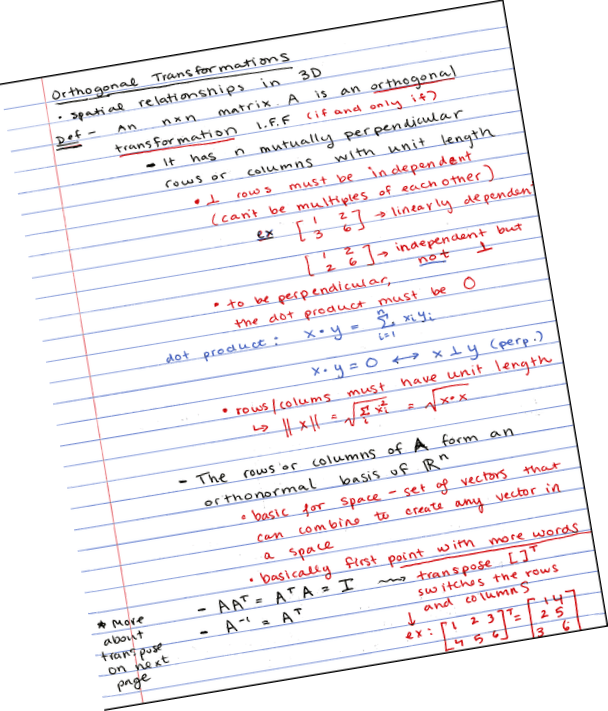 Orthogonal Transformations
• spatial relationships in 3D
Def - An nxn matrix A is an orthogonal
transformation I.F.F (if and only if)
- It has n mutually perpendicular
rows or columns with unit length
• ⊥ rows must be independent
(can't be multiples of each other)
ex [1 2; 3 6] → linearly dependent
[1 2; 2 6] → independent but
not ⊥
• to be perpendicular,
the dot product must be 0
dot product: x • y = Σ_{i=1}^{n} x_i y_i
x • y = 0 ↔ x ⊥ y (perp.)
• rows/colums must have unit length
↳ ||x|| = √(Σ_i x_i²) = √(x•x)
- The rows or columns of A form an
orthonormal basis of ℝⁿ
• basic for space - set of vectors that
can combine to create any vector in
a space
• basically first point with more words
- AAᵀ = AᵀA = I ⟿ transpose [ ]ᵀ
switches the rows
and columns
- A⁻¹ = Aᵀ
ex: [1 2 3; 4 5 6]ᵀ = [1 4; 2 5; 3 6]
* More
about
transpose
on next
page